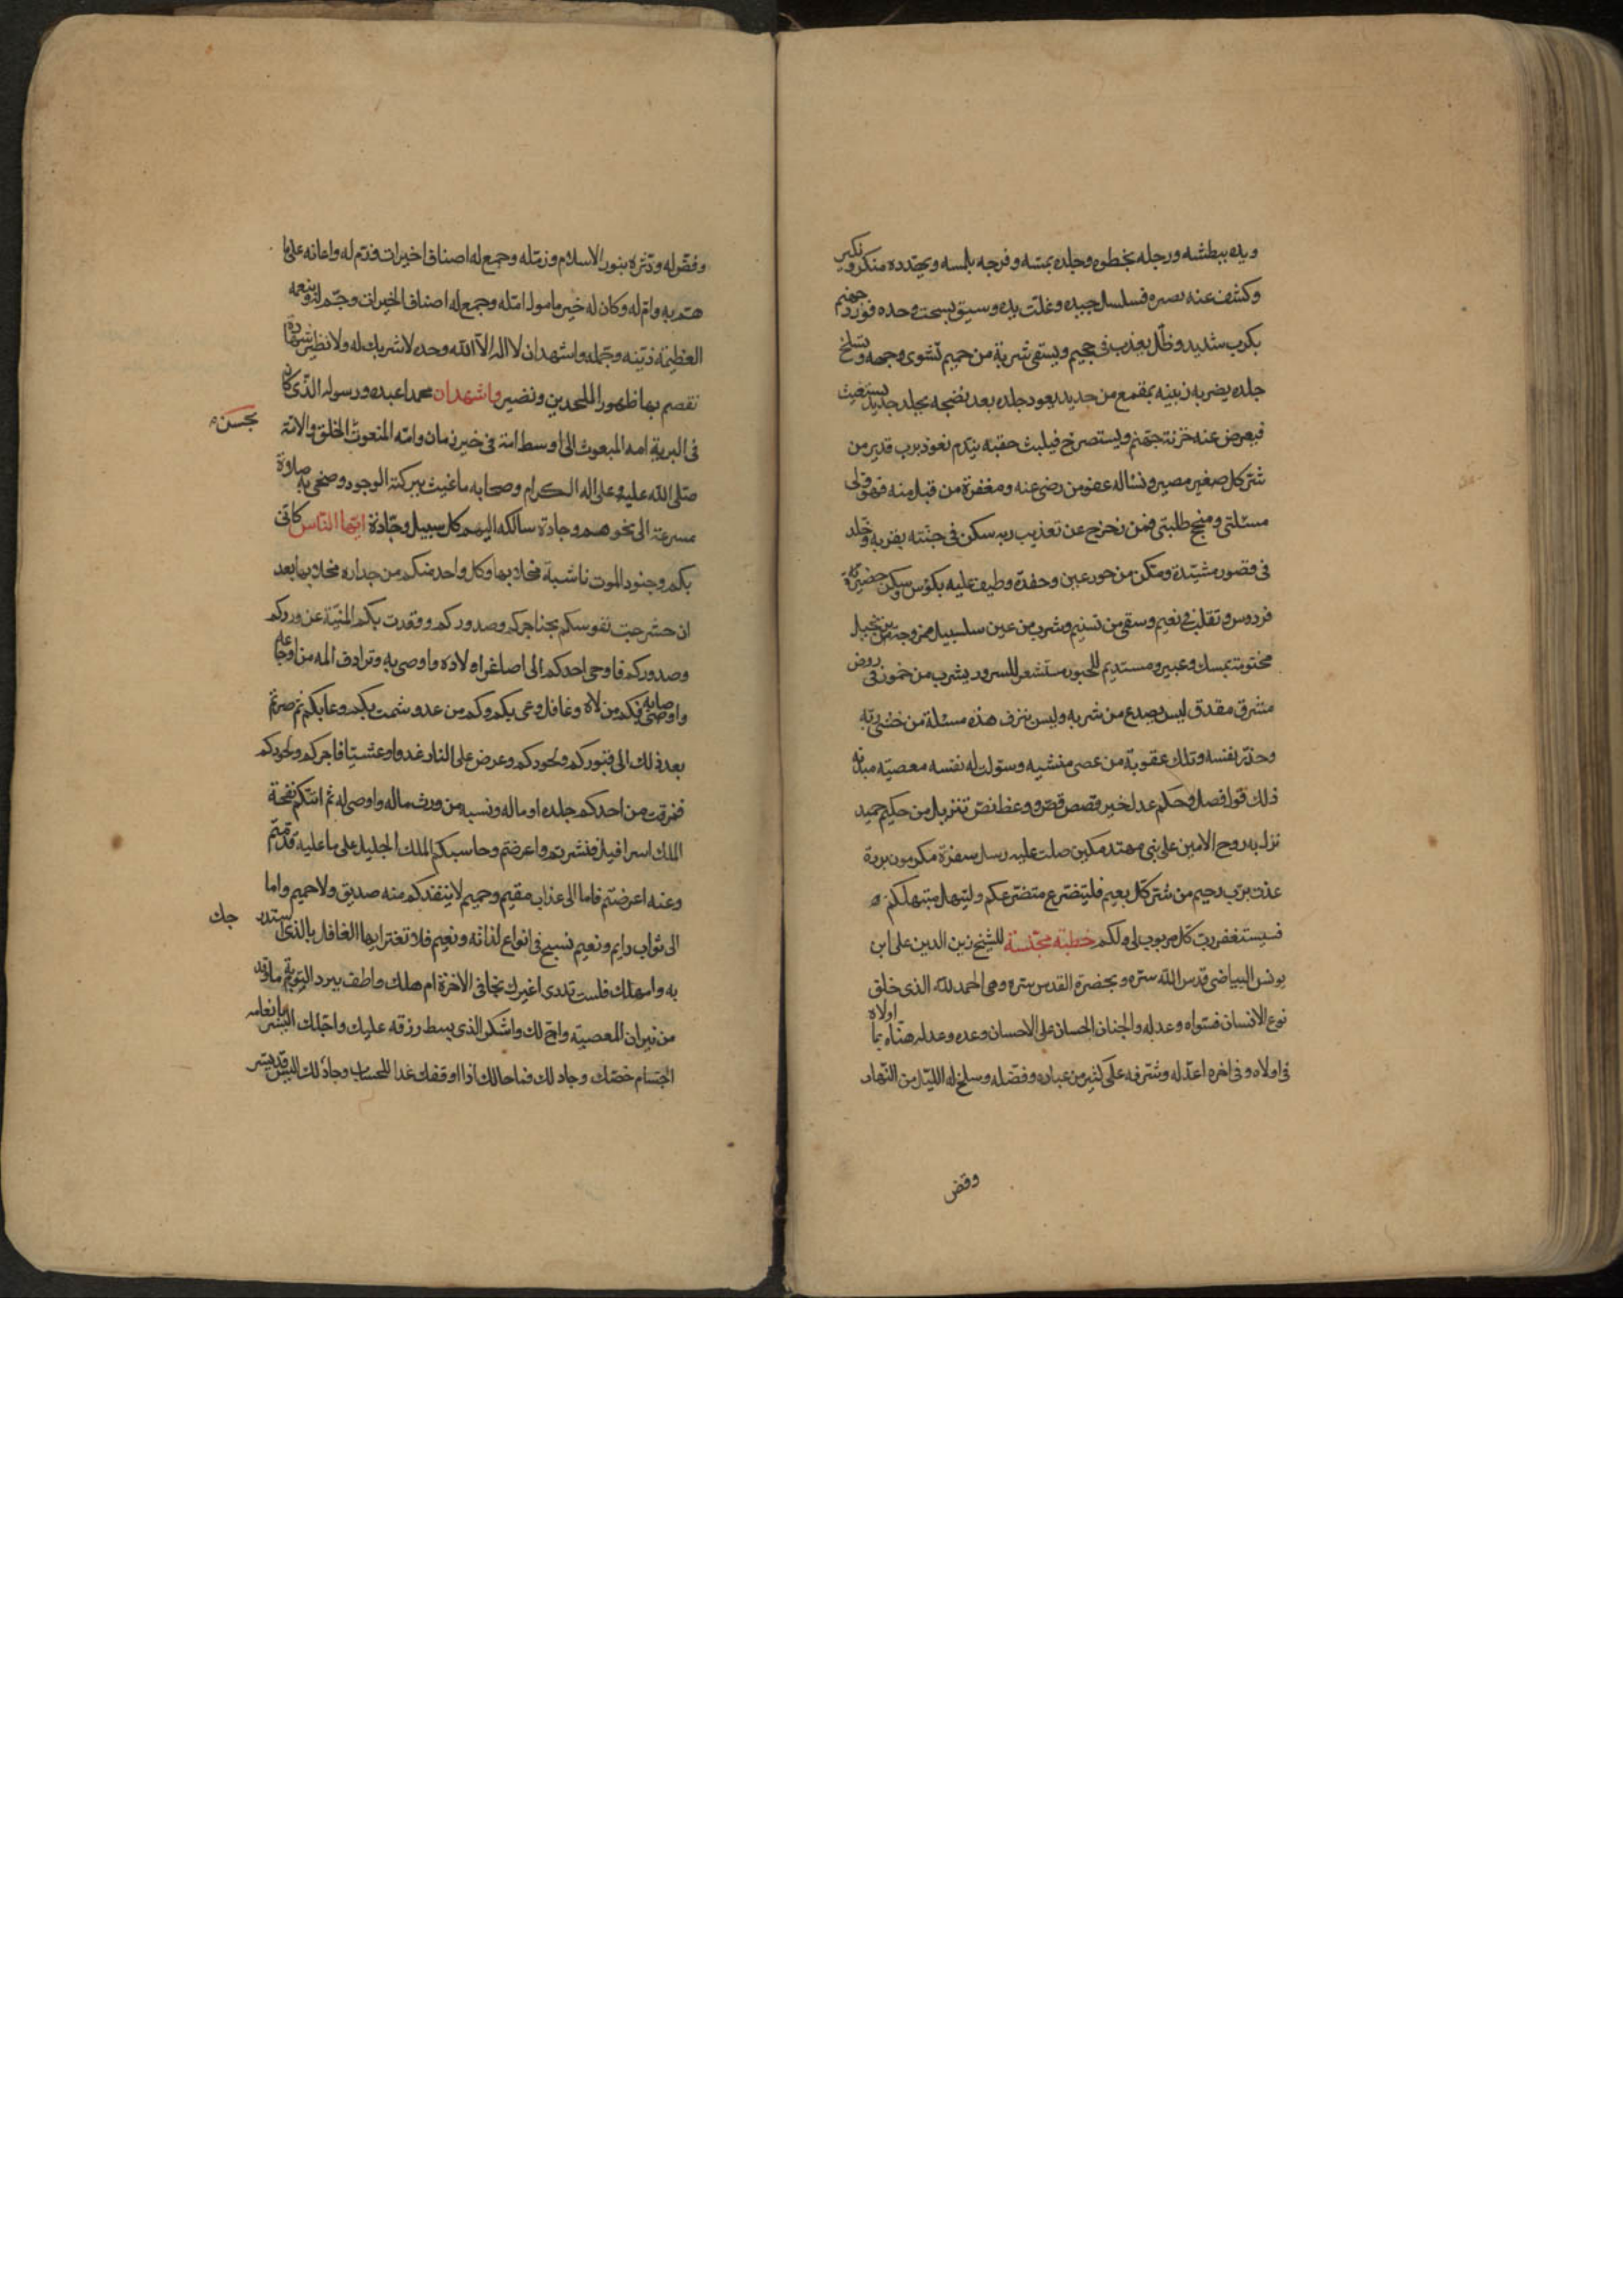 ويده ببطشه ورجله بخطوه وجلده بمسه وفرجه بلمسه ويهدده منكر ونكير
وكشف عنه بصره فسلسل جيده وغلت يده وسيق يسحب وحده فورد جهنم
بكرب شديد وظل يعذب فى جحيم ويسقى شربة من حميم تشوى وجهه وتسلخ
جلده يضربه زبينه بمقمع من حديد يعود جلده بعد نضجه بجلد جديد يستغيث
فيعرض عنه خزنة جهنم ويستصرخ فيلبث حقبه يندم نعوذ برب قدير من
شر كل صغير مصير ونساله عفو من رضى عنه ومغفرة من قبل منه فهو ولى
مسئلتى ومنجح طلبتى فمن زحزح عن تعذيب ربه سكن فى جنته بقربه وخلد
فى قصور مشيدة ومكن من حور عين وحفدة وطيف عليه بكؤس وسكن حضيرة
فردوس وتقلب فى نعيم وسقى من تسنيم وشرب من عين سلسبيل ممزوجة بزنجبيل
مختومة بمسك وعبير ومستديم للحبور مستشعر للسرور يشرب من خمور فى روض
مشرق مغدق ليس يصدع من شربه وليس ينزف هذه مسئلة من خشى ربه
وحذر نفسه وتلك عقوبة من عصى منشيه وسولت له نفسه معصية مبديه
ذلك قول فصل وحكم عدل خير قصص قص ووعظ نص تنزيل من حكيم حميد
نزل به روح الامين على نبى مهتد مكين صلت عليه رسل سفرة مكرمون بررة
عذت برب رحيم من شر كل رجيم فليتضرع متضرعكم وليبتهل مبتهلكم
فسيستغفر رب كل مربوب لى ولكم خطبة مجنسة للشيخ زين الدين على ابن
يونس البياضى قدس الله سره وبحضرة القدس سره وهى الحمد لله الذى خلق
نوع الانسان فسواه وعدله والجنان الحسان على الاحسان وعده وعد له هناه بما اولاه
فى اولاه وفى اخره اعد له وشرفه على كثير من عباده وفضله وسلخ له الليل من النهار
وفض
وفضله ودثره بنور الاسلام وزمله وجمع له اصناف اخيرات وقدم له واعانه على ما
هم به وام له وكان له خير مامول امله وجمع له اصناف الخيرات وجم له وبنعمه
العظيمة زينه وجمله واشهد ان لا اله الا الله وحده لا شريك له ولا نظير شهادة
نقصم بها ظهور الملحدين ونضير واشهد ان محمدا عبده ورسوله الذى كان
فى البرية امه المبعوث الى اوسط امة فى خير زمان وامه المنعوث الخلق والامة
بحسن
صلى الله عليه وعلى اله الكرام وصحابه ما غيث ببركته الوجود وضحى به صلاة
مسرعة الى نحوهم وجادة سالكه اليهم كل سبيل وجادة ايها الناس كانى
بكم وجنود الموت ناشبة مخالبها وكل واحد منكم من جداره مخلا بها بعد
ان حشرجت نفوسكم بحناجركم وصدوركم وقعدت بكم المنية عن وردكم
وصدوركم فاوحى احدكم الى اصاغر اولاده واوصى به وترادف المه من اوجاعه
واوصابه فكم من لاه وغافل وعى بكم وكم من عدو شمت بكم وعابكم ثم صرتم
بعد ذلك الى قبوركم ولحودكم وعرض على النار غدوا وعشيا فاجركم ولحودكم
فمزقت من احدكم جلده او ماله ونسبه من ورث ماله واوصى له ثم اتتكم نفحة
الملك اسرافيل فنشرتم واعرضتم وحاسبكم الملك الجليل على ما عليه قدمتم
وعنه اعرضتم فاما الى عذاب مقيم وحميم لا ينقذكم منه صديق ولا حميم واما
الى ثواب دايم ونعيم نسبح فى انواع لذاته ونعيم فلا تغتر ايها الغافل بالذى استدر
جك
به وامهلك فلست تدرى اغيرك نجا فى الاخرة ام هلك واطف ببرد التوبة ما وقد
من نيران المعصية واج لك واشكر الذى بسط رزقه عليك واجلك البشر بانعامه
الجسام خصك وجاد لك فما حالك اذا اوقفك غدا للحساب وجاد لك اليس قد يسر